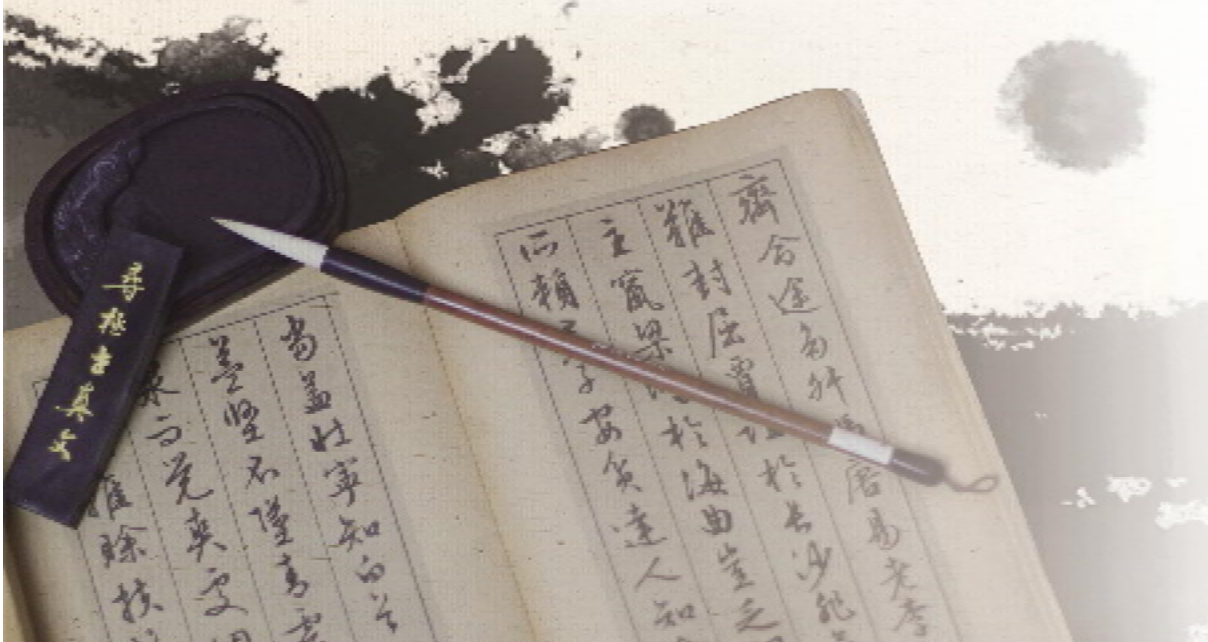 齊命途多舛唐易老李
難封屈賈誼於長沙非
主竄梁於海曲豈乏
所賴子安貧達人知
當益壯寧知白首
益堅不墜青雲
泉而覺爽處涸
雖賒扶